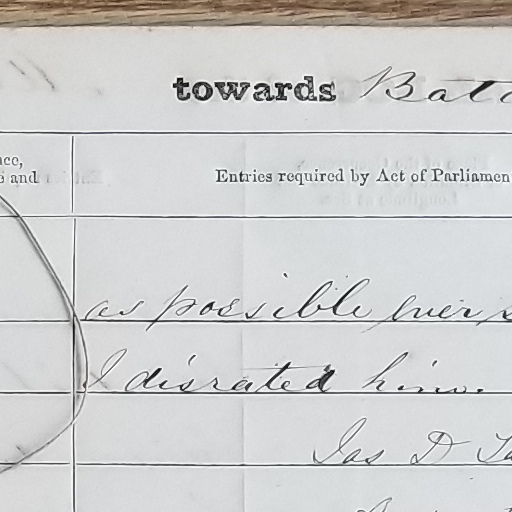 towards Bata
nce,
s and
Entries required by Act of Parliamen
as possible
I disrated him.
Jas D